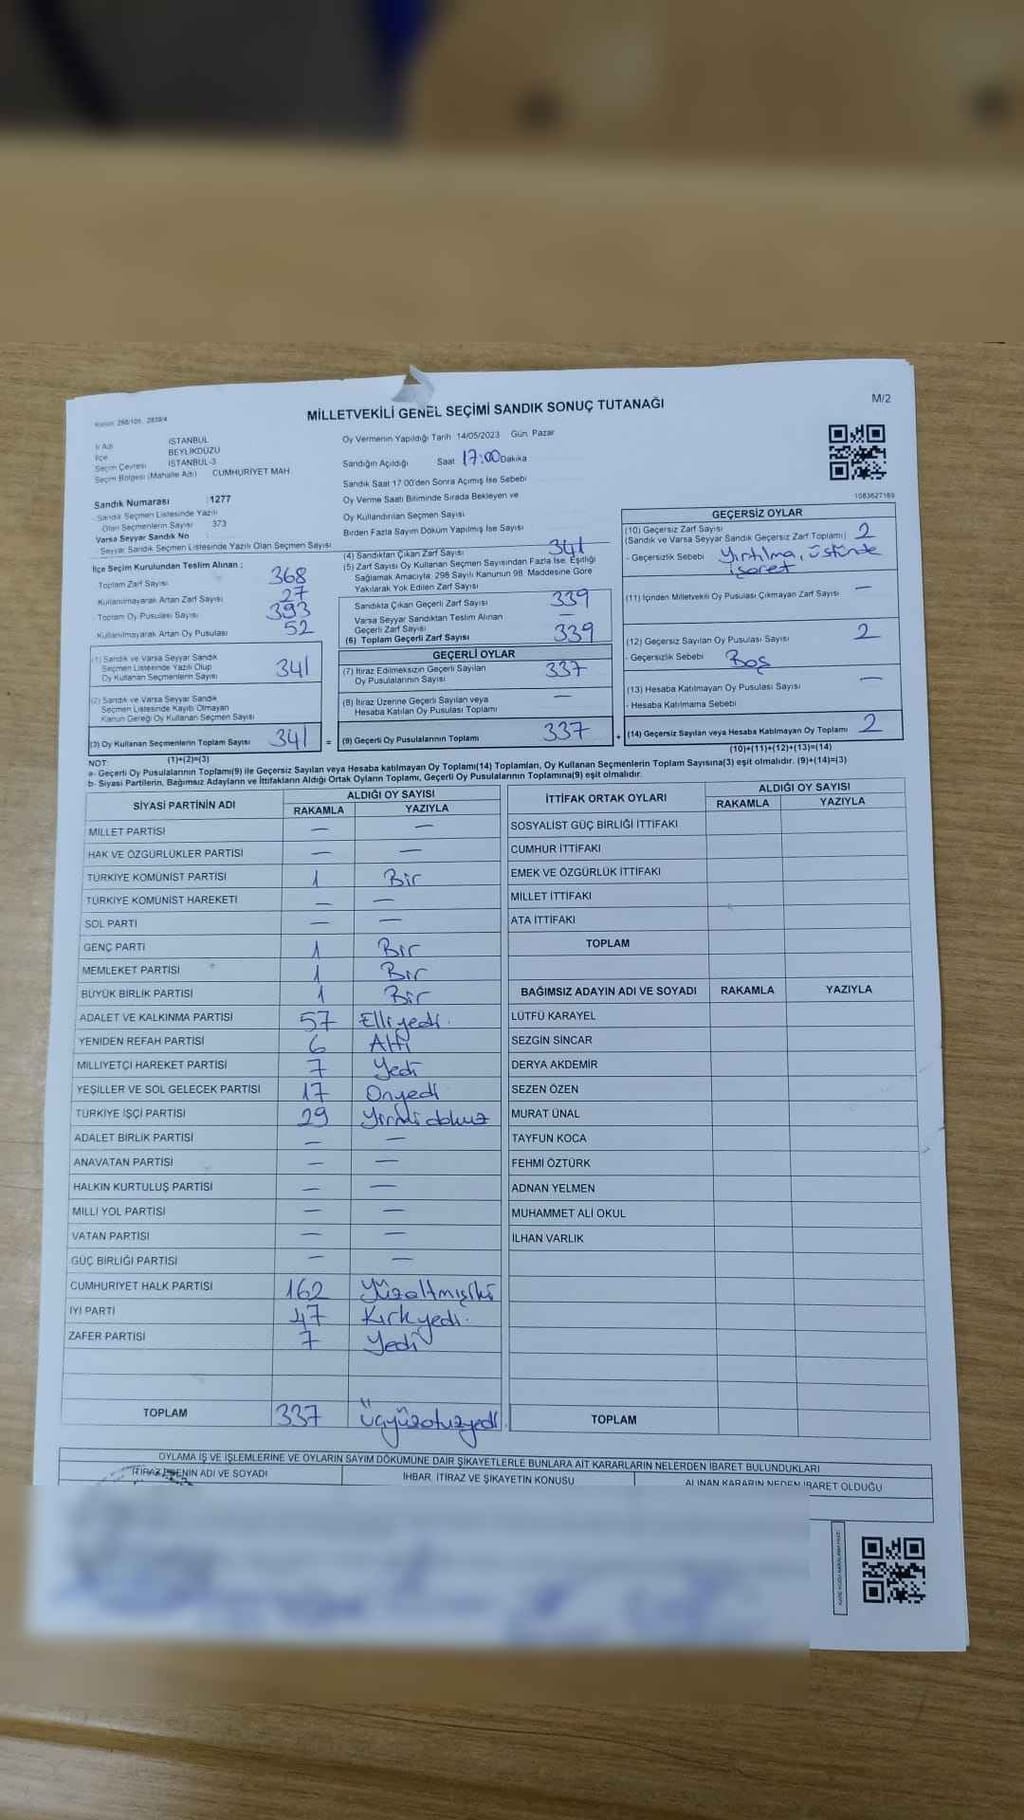 MİLLETVEKİLİ GENEL SEÇİMİ SANDIK SONUÇ TUTANAĞI
M/2
İl Adı İSTANBUL
İlçe BEYLİKDÜZÜ
Seçim Çevresi İSTANBUL-3
Seçim Bölgesi (Mahalle Adı) CUMHURİYET MAH.
Sandık Numarası :1277
Sandık Seçmen Listesinde Yazılı
Olan Seçmenlerin Sayısı 373
Varsa Seyyar Sandık No
Seyyar Sandık Seçmen Listesinde Yazılı Olan Seçmen Sayısı
Oy Vermenin Yapıldığı Tarih 14/05/2023 Gün: Pazar
Sandığın Açıldığı Saat 17:00 Dakika
Sandık Saat 17.00'den Sonra Açımış İse Sebebi
Oy Verme Saati Bitiminde Sırada Bekleyen ve
Oy Kullandırılan Seçmen Sayısı
Birden Fazla Sayım Döküm Yapılmış İse Sayısı
1083627169
İlçe Seçim Kurulundan Teslim Alınan ;
Toplam Zarf Sayısı 368
Kullanılmayarak Artan Zarf Sayısı 27
Toplam Oy Pusulası Sayısı 393
Kullanılmayarak Artan Oy Pusulası 52
(1) Sandık ve Varsa Seyyar Sandık
Seçmen Listesinde Yazılı Olup
Oy Kullanan Seçmenlerin Sayısı 341
(2) Sandık ve Varsa Seyyar Sandık
Seçmen Listesinde Kayıtlı Olmayan
Kanun Gereği Oy Kullanan Seçmen Sayısı
(3) Oy Kullanan Seçmenlerin Toplam Sayısı 341 =
(1)+(2)=(3)
(4) Sandıktan Çıkan Zarf Sayısı 341
(5) Zarf Sayısı Oy Kullanan Seçmen Sayısından Fazla İse, Eşitliği
Sağlamak Amacıyla; 298 Sayılı Kanunun 98. Maddesine Göre
Yakılarak Yok Edilen Zarf Sayısı
Sandıkta Çıkan Geçerli Zarf Sayısı 339
Varsa Seyyar Sandıktan Teslim Alınan
Geçerli Zarf Sayısı —
(6) Toplam Geçerli Zarf Sayısı 339
GEÇERLİ OYLAR
(7) İtiraz Edilmeksizin Geçerli Sayılan
Oy Pusulalarının Sayısı 337
(8) İtiraz Üzerine Geçerli Sayılan veya
Hesaba Katılan Oy Pusulası Toplamı —
(9) Geçerli Oy Pusulalarının Toplamı 337 +
GEÇERSİZ OYLAR
(10) Geçersiz Zarf Sayısı
(Sandık ve Varsa Seyyar Sandık Geçersiz Zarf Toplamı) 2
- Geçersizlik Sebebi Yırtılma, üstünde
işaret
(11) İçinden Milletvekili Oy Pusulası Çıkmayan Zarf Sayısı —
(12) Geçersiz Sayılan Oy Pusulası Sayısı 2
- Geçersizlik Sebebi Boş
(13) Hesaba Katılmayan Oy Pusulası Sayısı —
- Hesaba Katılmama Sebebi
(14) Geçersiz Sayılan veya Hesaba Katılmayan Oy Toplamı 2
(10)+(11)+(12)+(13)=(14)
NOT:
a- Geçerli Oy Pusulalarının Toplamı(9) ile Geçersiz Sayılan veya Hesaba Katılmayan Oy Toplamı(14) Toplamları, Oy Kullanan Seçmenlerin Toplam Sayısına(3) eşit olmalıdır. (9)+(14)=(3)
b- Siyasi Partilerin, Bağımsız Adayların ve İttifakların Aldığı Ortak Oyların Toplamı, Geçerli Oy Pusulalarının Toplamına(9) eşit olmalıdır.
SİYASİ PARTİNİN ADI ALDIĞI OY SAYISI
RAKAMLA YAZIYLA
MİLLET PARTİSİ — —
HAK VE ÖZGÜRLÜKLER PARTİSİ — —
TÜRKİYE KOMÜNİST PARTİSİ 1 Bir
TÜRKİYE KOMÜNİST HAREKETİ — —
SOL PARTİ — —
GENÇ PARTİ 1 Bir
MEMLEKET PARTİSİ 1 Bir
BÜYÜK BİRLİK PARTİSİ 1 Bir
ADALET VE KALKINMA PARTİSİ 57 Elliyedi.
YENİDEN REFAH PARTİSİ 6 Altı
MİLLİYETÇİ HAREKET PARTİSİ 7 Yedi
YEŞİLLER VE SOL GELECEK PARTİSİ 17 Onyedi
TÜRKİYE İŞÇİ PARTİSİ 29 Yirmidokuz
ADALET BİRLİK PARTİSİ — —
ANAVATAN PARTİSİ — —
HALKIN KURTULUŞ PARTİSİ — —
MİLLİ YOL PARTİSİ — —
VATAN PARTİSİ — —
GÜÇ BİRLİĞİ PARTİSİ — —
CUMHURİYET HALK PARTİSİ 162 Yüzaltmışiki
İYİ PARTİ 47 Kırkyedi.
ZAFER PARTİSİ 7 Yedi
TOPLAM 337 Üçyüzotuzyedi
İTTİFAK ORTAK OYLARI ALDIĞI OY SAYISI
RAKAMLA YAZIYLA
SOSYALİST GÜÇ BİRLİĞİ İTTİFAKI
CUMHUR İTTİFAKI
EMEK VE ÖZGÜRLÜK İTTİFAKI
MİLLET İTTİFAKI
ATA İTTİFAKI
TOPLAM
BAĞIMSIZ ADAYIN ADI VE SOYADI RAKAMLA YAZIYLA
LÜTFÜ KARAYEL
SEZGİN SİNCAR
DERYA AKDEMİR
SEZEN ÖZEN
MURAT ÜNAL
TAYFUN KOCA
FEHMİ ÖZTÜRK
ADNAN YELMEN
MUHAMMET ALİ OKUL
İLHAN VARLIK
TOPLAM
OYLAMA İŞ VE İŞLEMLERİNE VE OYLARIN SAYIM DÖKÜMÜNE DAİR ŞİKAYETLERLE BUNLARA AİT KARARLARIN NELERDEN İBARET BULUNDUKLARI
İTİRAZ EDENİN ADI VE SOYADI İHBAR, İTİRAZ VE ŞİKAYETİN KONUSU ALINAN KARARIN NEDEN İBARET OLDUĞU